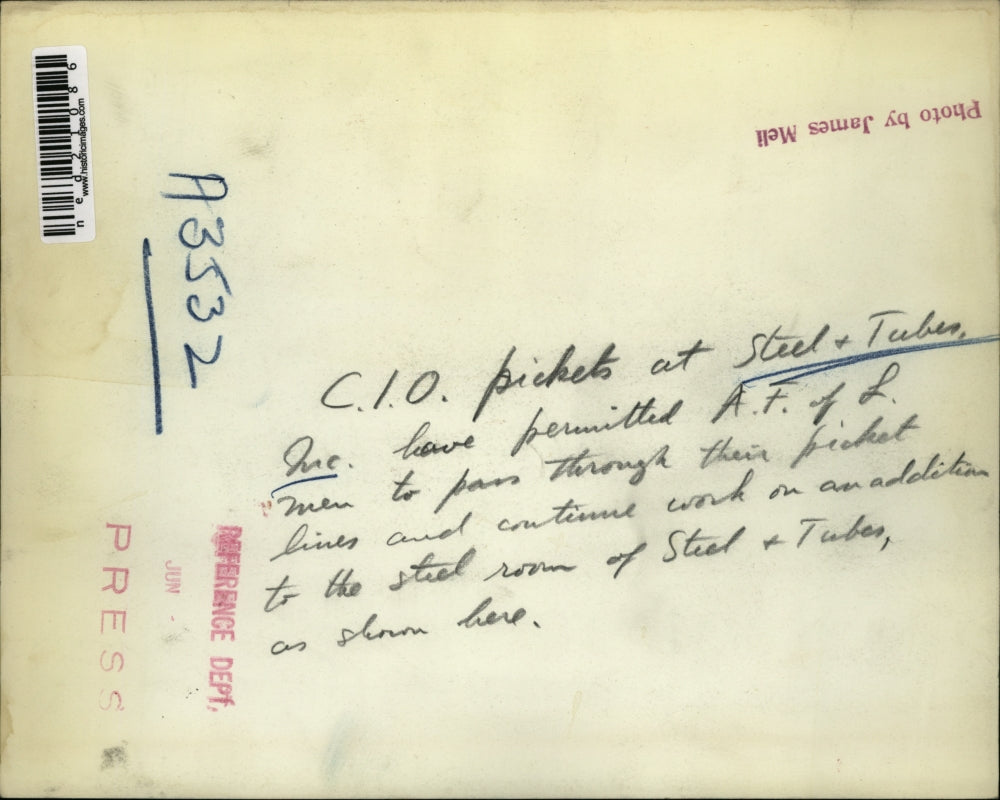 n e d 2 1 0 8 6
www.historicimages.com
Photo by James Meli
A3532
C.I.O. pickets at Steel + Tubes,
Inc. have permitted A.F. of L.
men to pass through their picket
lines and continue work on an addition
to the steel room of Steel + Tubes,
as shown here.
REFERENCE DEPT.
JUN -
PRESS